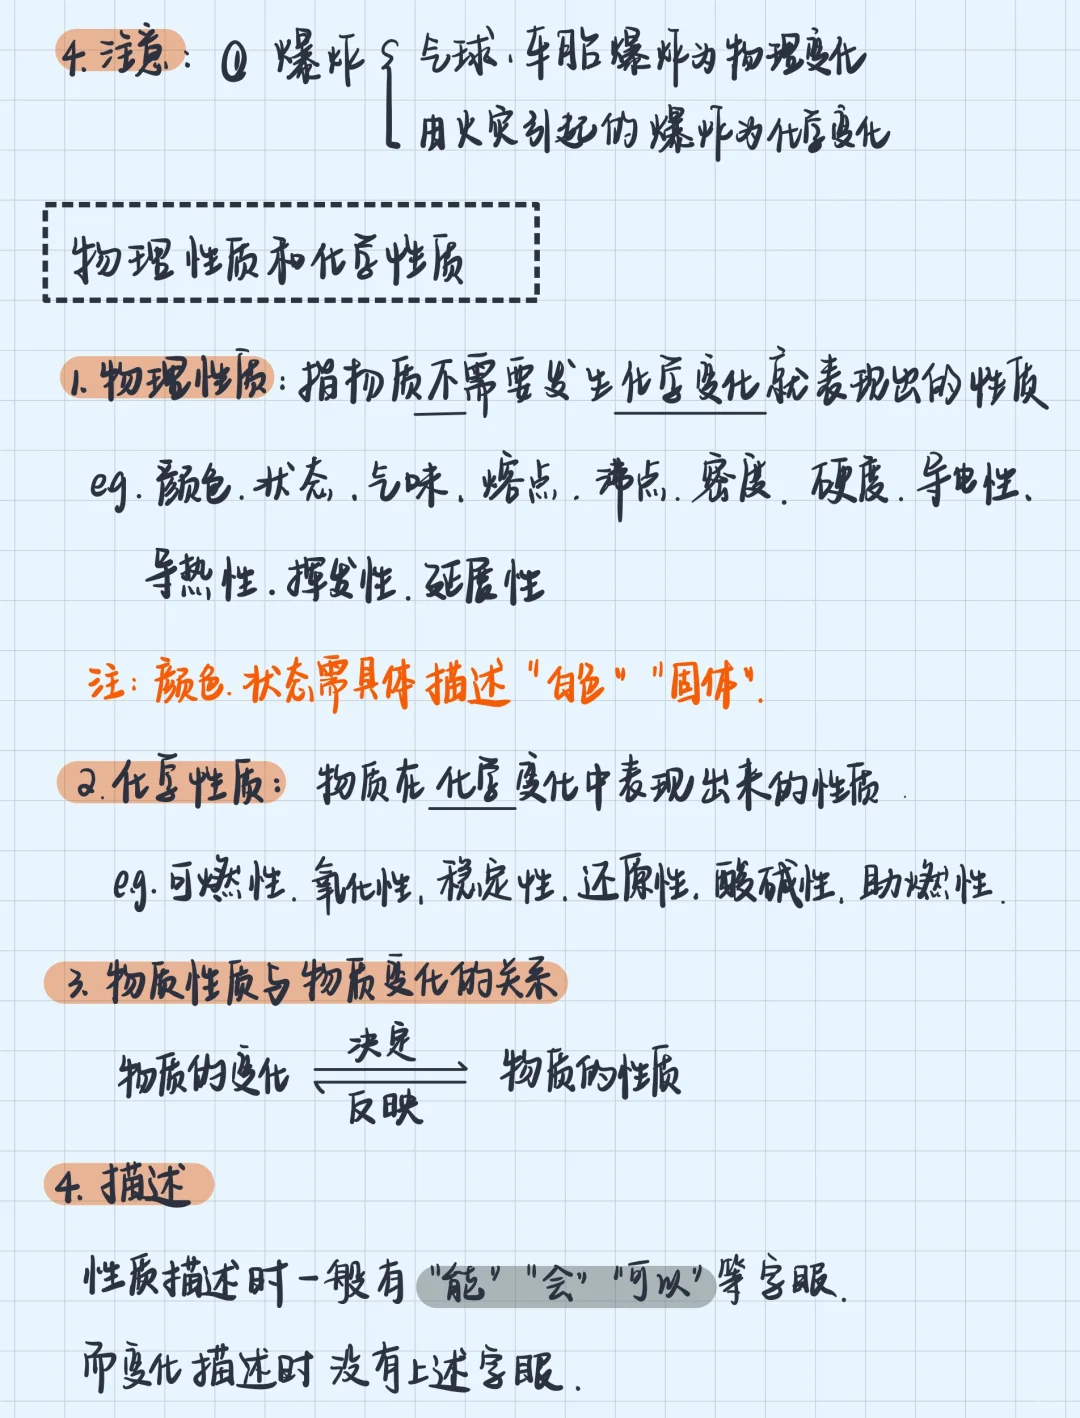 4.注意：① 爆炸 { 气球、车胎爆炸为物理变化
由火灾引起的爆炸为化学变化
物理性质和化学性质
1.物理性质：指物质不需要发生化学变化就表现出的性质
eg.颜色.状态.气味.熔点.沸点.密度.硬度.导电性.
导热性.挥发性.延展性
注：颜色.状态需具体描述"白色""固体".
2.化学性质：物质在化学变化中表现出来的性质.
eg.可燃性.氧化性.稳定性.还原性.酸碱性.助燃性.
3.物质性质与物质变化的关系
决定
物质的变化 ⇌ 物质的性质
反映
4.描述
性质描述时一般有"能""会""可以"等字眼.
而变化描述时没有上述字眼.